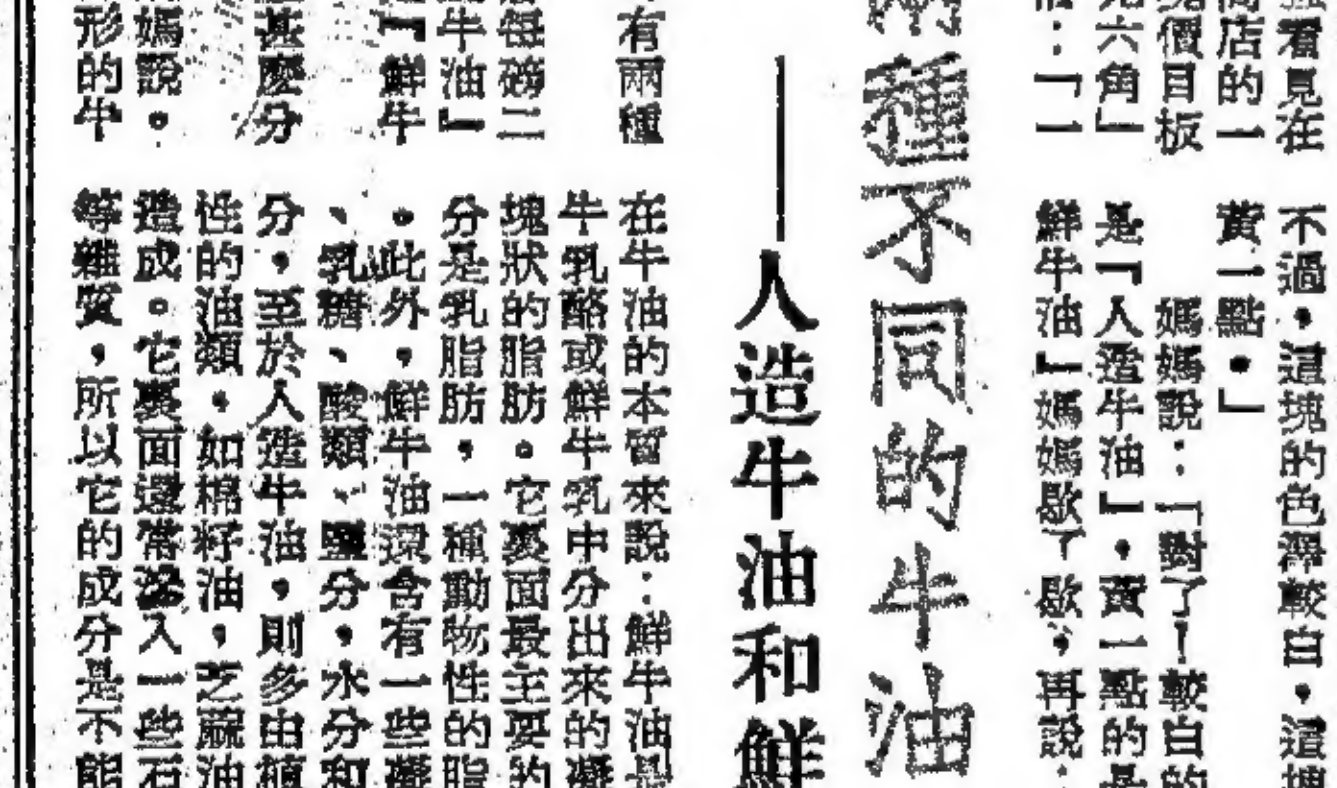 看見在
商店的一
價目板
元六角」
：「一
不過，這塊的色澤較白，這塊
黃一點。」
媽媽說：「對了！較白的
是『人造牛油』，黃一點的是
鮮牛油』媽媽歇了歇，再說：
兩種不同的牛油
——人造牛油和鮮
有兩種
每磅二
牛油』
『鮮牛
甚麼分
媽說。
形的牛
在牛油的本質來說：鮮牛油是
牛乳酪或鮮牛乳中分出來的凝
塊狀的脂肪。它裏面最主要的
分是乳脂肪，一種動物性的脂
。此外，鮮牛油還含有一些凝
、乳糖、酸類、鹽分，水分和
分，至於人造牛油，則多由植
性的油類。如棉籽油，芝蔴油
造成。它裏面還常滲入一些石
等雜質，所以它的成分是不能